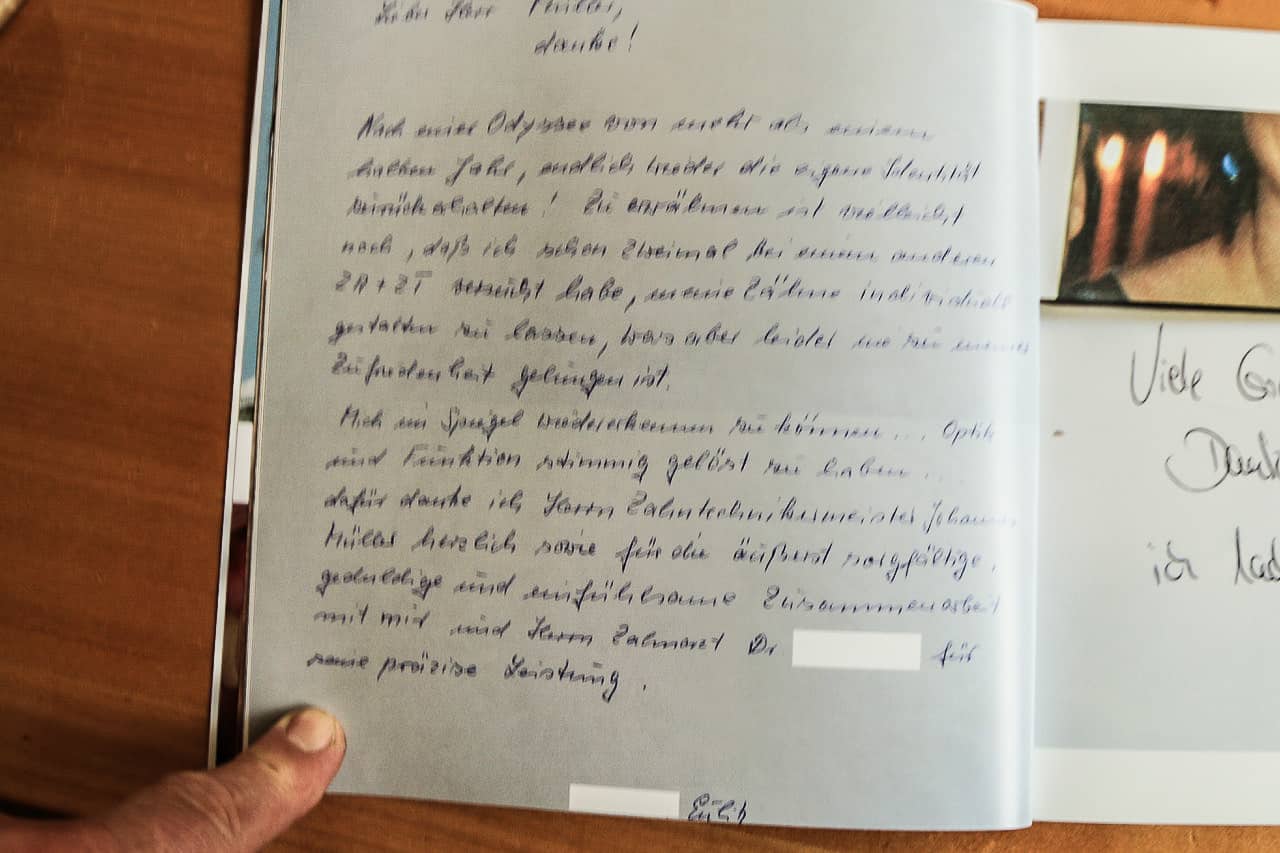 Lieber Herr Müller,
danke!
Nach einer Odyssee von mehr als einem
halben Jahr, endlich wieder die eigene Identität
zurückerhalten! Zu erwähnen ist vielleicht
noch, daß ich schon zweimal bei einem anderen
ZA + ZT versucht habe, meine Zähne individuell
gestalten zu lassen, was aber leider nie zu meiner
Zufriedenheit gelungen ist.
Mich im Spiegel wiedererkennen zu können... Optik
und Funktion stimmig gelöst zu haben...
dafür danke ich Herrn Zahntechnikermeister Johannes
Müller herzlich sowie für die äußerst sorgfältige,
geduldige und einfühlsame Zusammenarbeit
mit mir und Herrn Zahnarzt Dr für
seine präzise Leistung.
Viele
ich